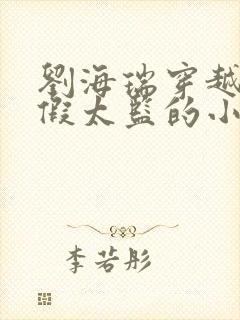 劉海瑞穿越
假太監的小
李若彤